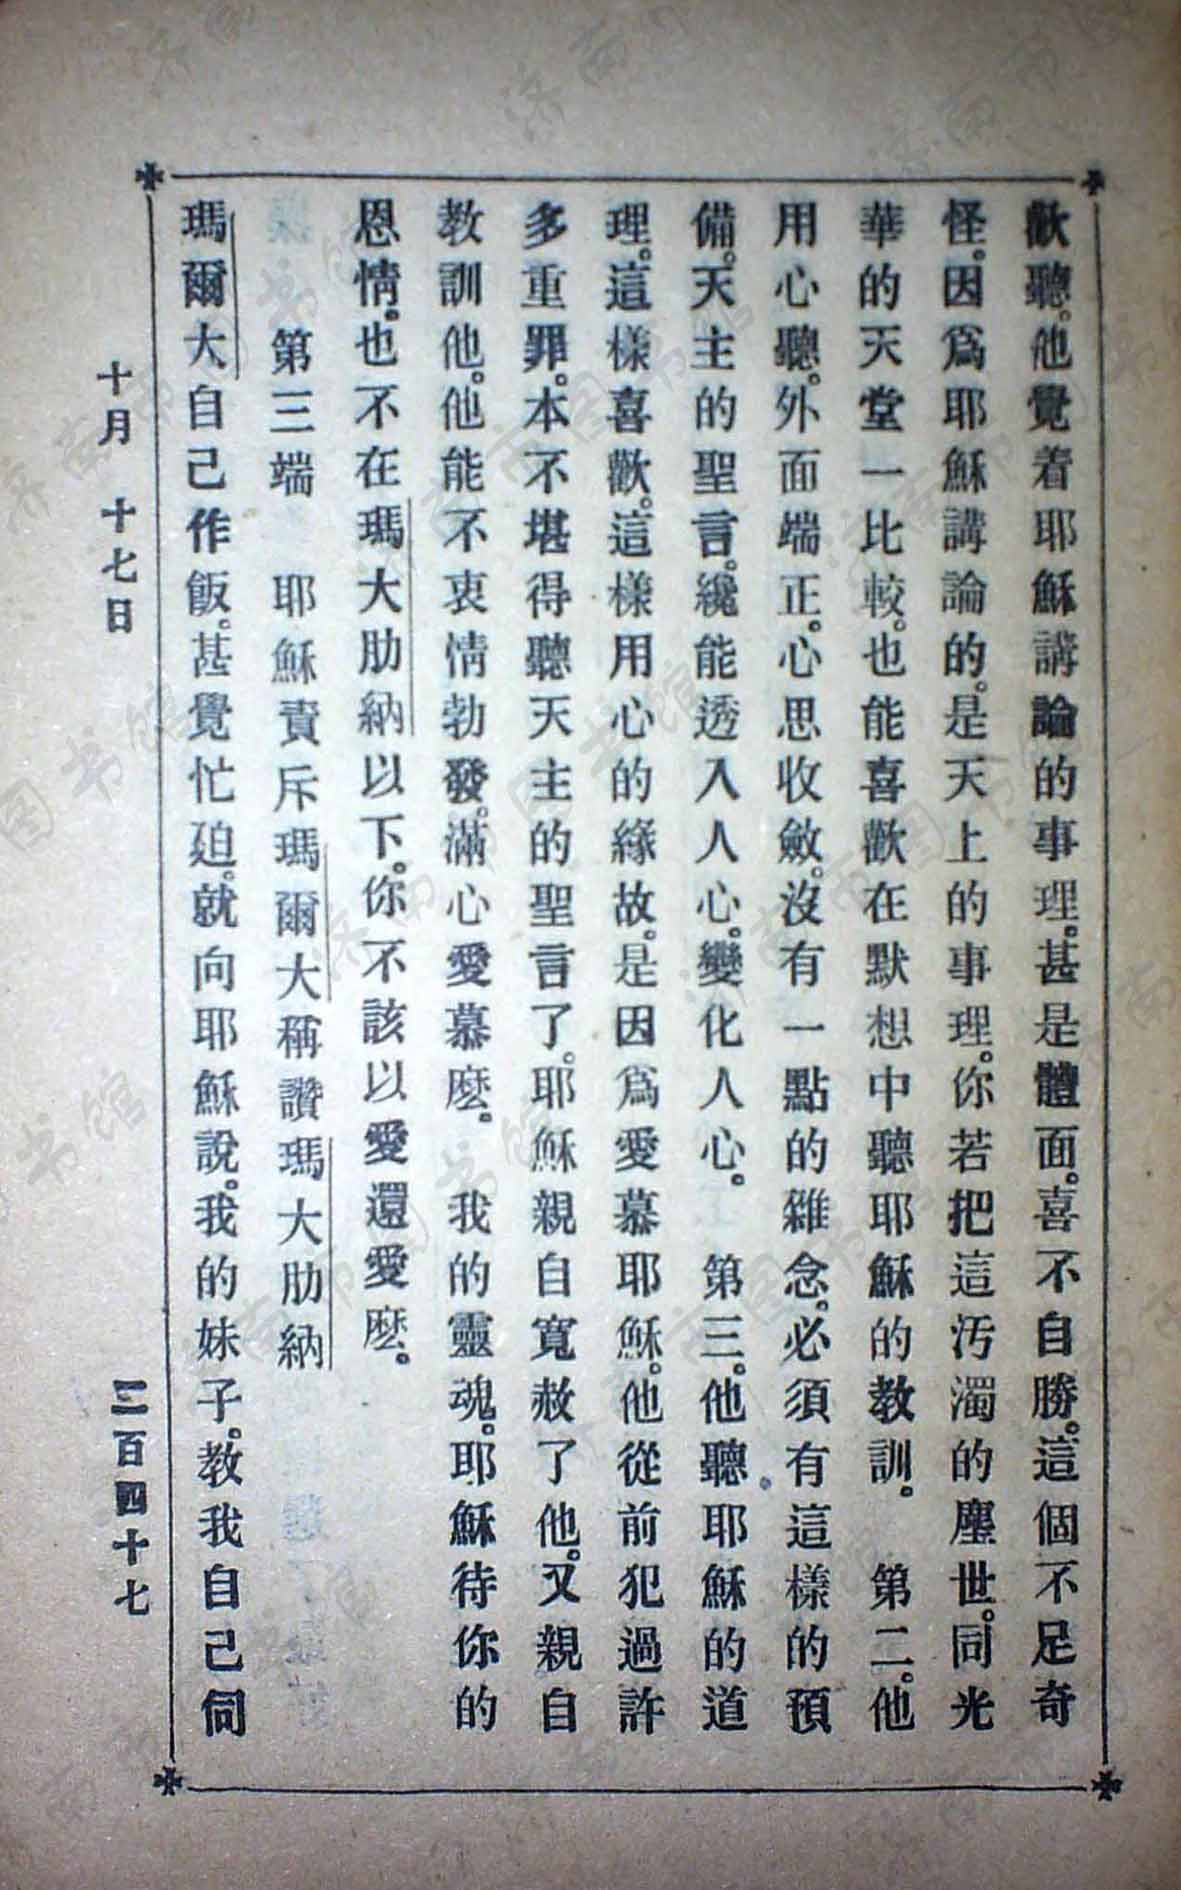 歡聽。他覺着耶穌講論的事理。甚是體面。喜不自勝。這個不足奇
怪。因爲耶穌講論的。是天上的事理。你若把這汚濁的塵世。同光
華的天堂一比較。也能喜歡在默想中聽耶穌的教訓。　第二。他
用心聽。外面端正。心思收斂。沒有一點的雜念。必須有這樣的預
備。天主的聖言。纔能透入人心。變化人心。　第三。他聽耶穌的道
理。這樣喜歡。這樣用心的緣故。是因爲愛慕耶穌。他從前犯過許
多重罪。本不堪得聽天主的聖言了。耶穌親自寬赦了他。又親自
教訓他。他能不衷情勃發。滿心愛慕麽。　我的靈魂。耶穌待你的
恩情。也不在瑪大肋納以下。你不該以愛還愛麽。
第三端　耶穌責斥瑪爾大稱讚瑪大肋納
瑪爾大自己作飯。甚覺忙廹。就向耶穌說。我的妹子。教我自己伺
十月　十七日　二百四十七
济南市图书馆